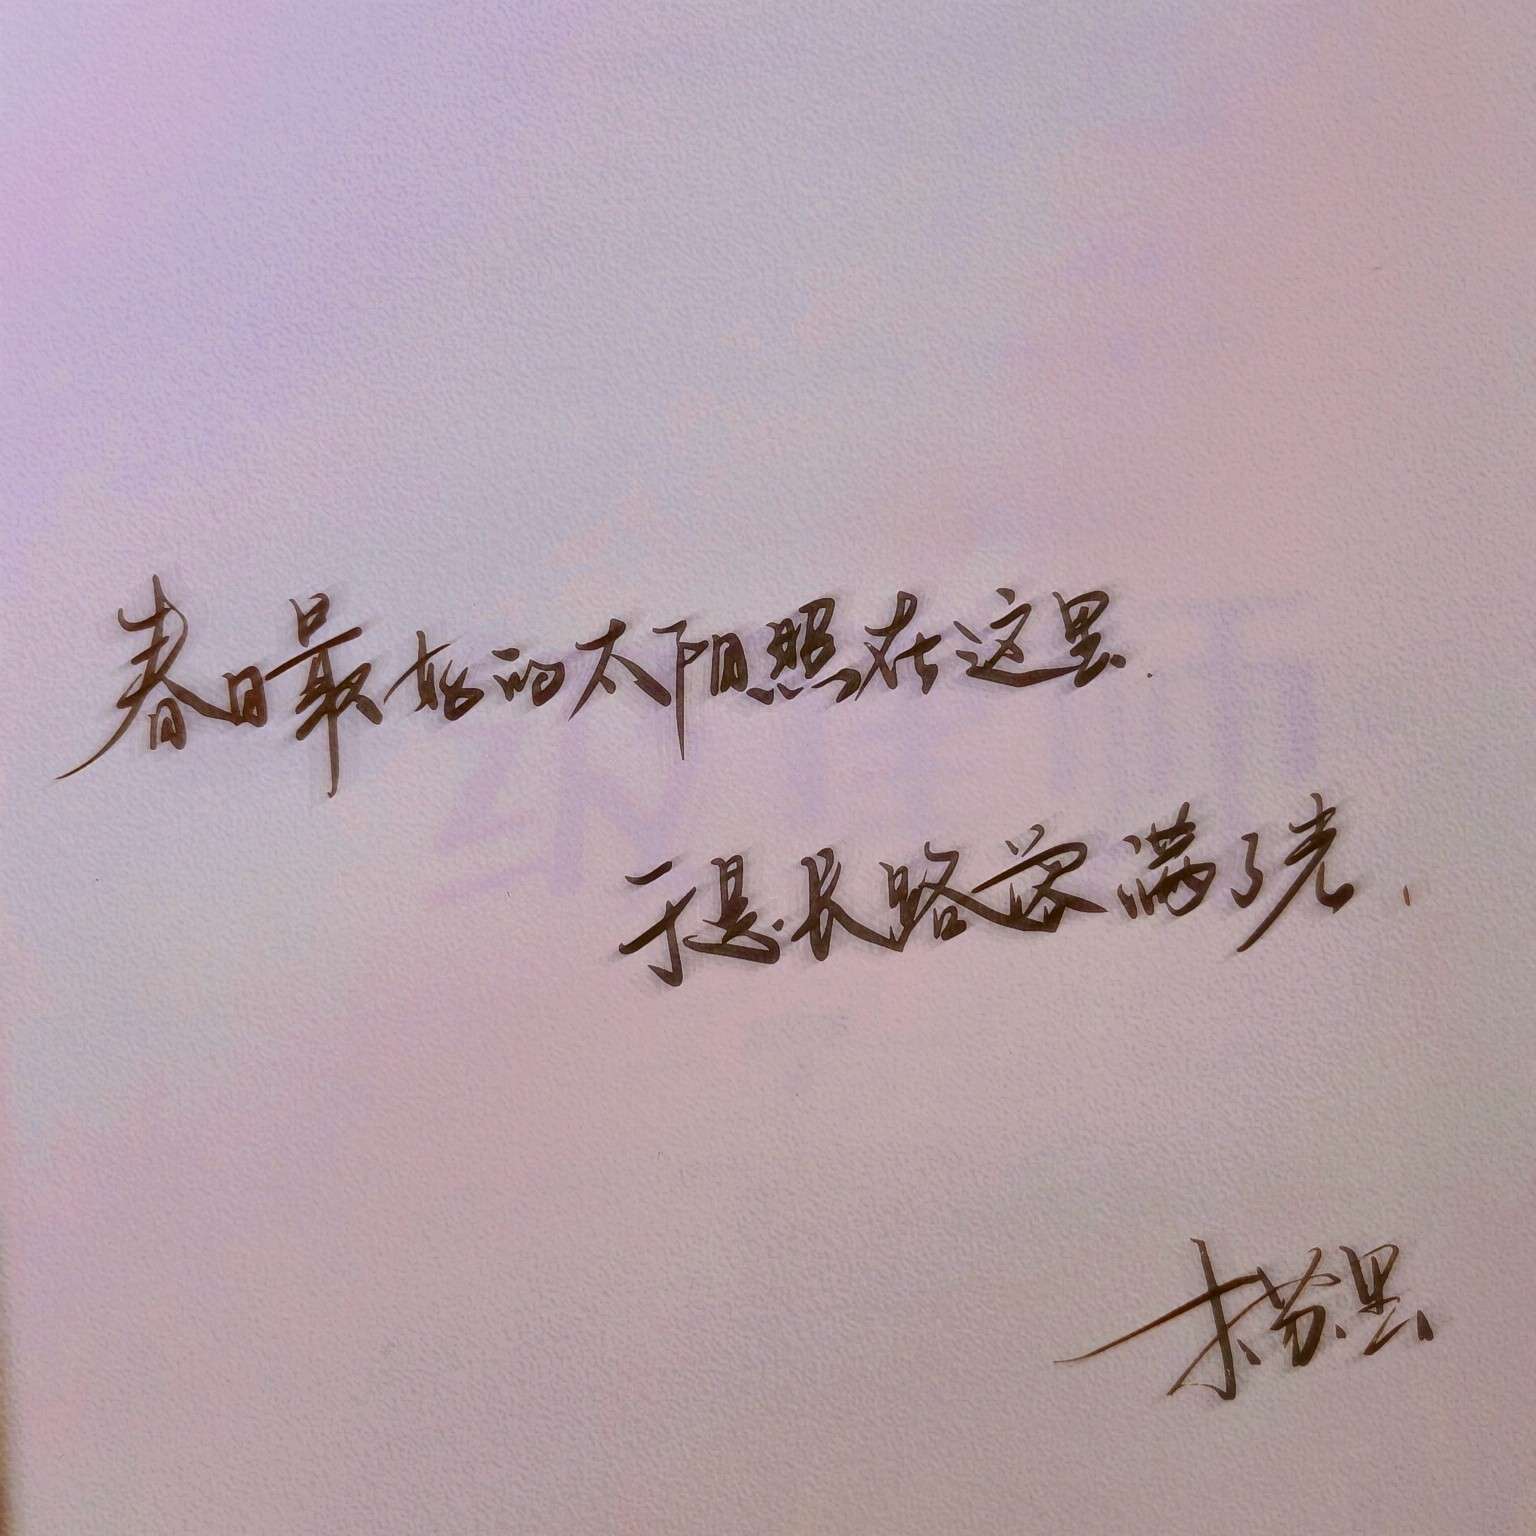 春日最好的太阳照在这里.
于是长路蒙满了光.